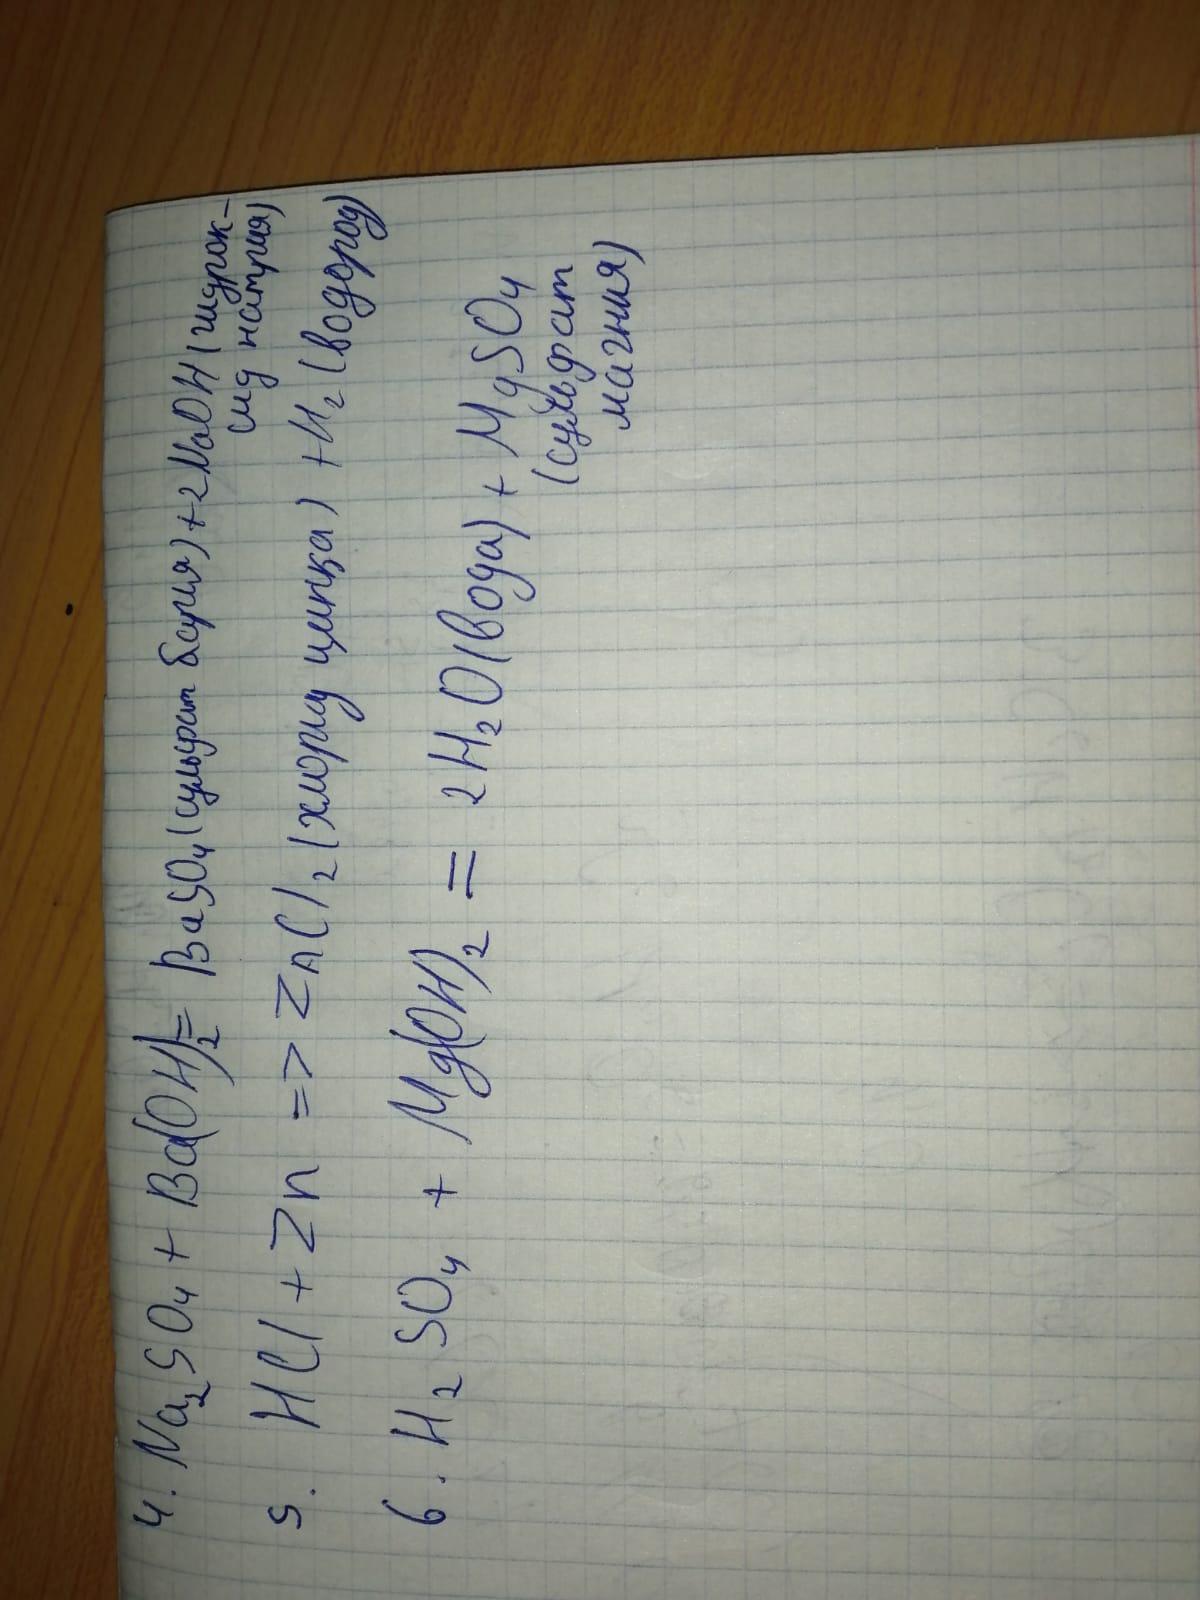 4. Na₂SO₄ + Ba(OH)₂ = BaSO₄ (сульфат бария) + 2NaOH (гидрок-
сид натрия)
5. HCl + Zn => ZnCl₂ (хлорид цинка) + H₂ (водород)
6. H₂SO₄ + Mg(OH)₂ = 2H₂O (вода) + MgSO₄
(сульфат
магния)